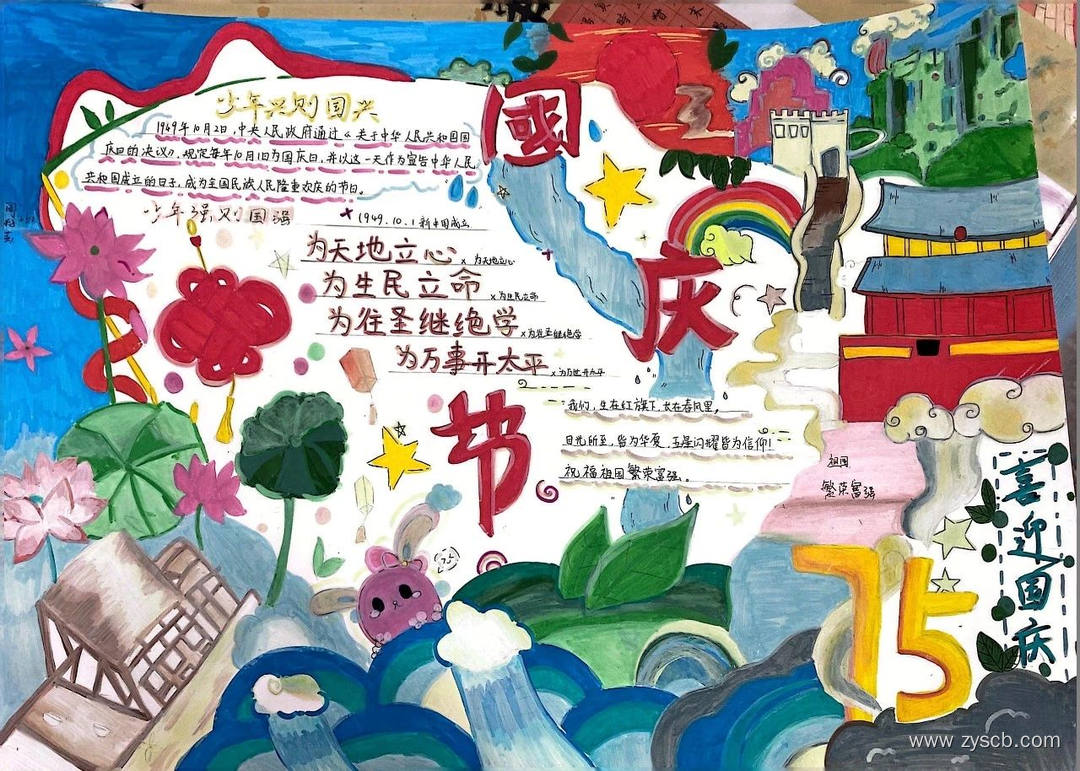 少年兴则国兴
1949年10月2日,中央人民政府通过《关于中华人民共和国国
庆日的决议》,规定每年10月1日为国庆日,并以这一天作为宣告中华人民
共和国成立的日子,成为全国民族人民隆重欢庆的节日。
少年强则国强
1949.10.1新中国成立
为天地立心 x 为天地立心
为生民立命 x 为生民立命
为往圣继绝学 x 为往圣继绝学
为万事开太平
國
庆
节
我们,生在红旗下,长在春风里。
目光所至,皆为华夏,五星闪耀皆为信仰!
祝福祖国繁荣富强。
祖国
繁荣富强
75
喜迎国庆
www.zyscb.com